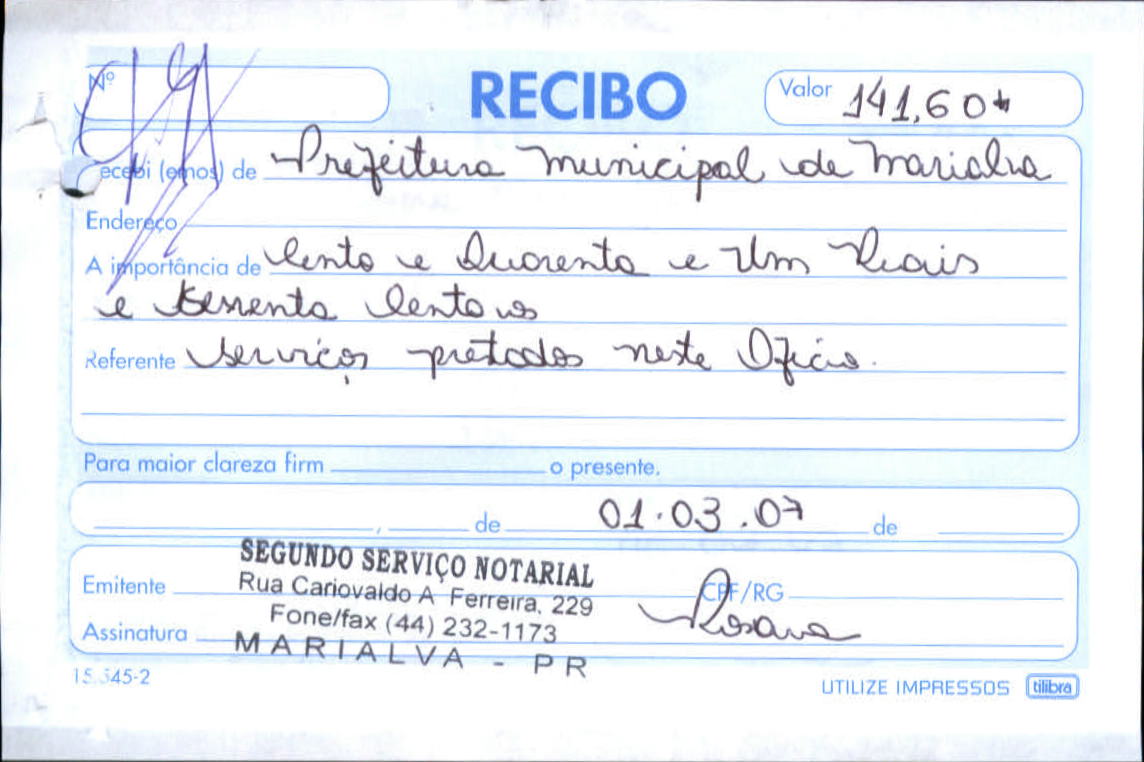 Nº RECIBO Valor 141,60
ecebi (emos) de Prefeitura Municipal de Marialva
Endereço
A importância de Cento e Quarenta e Um Reais
e Sessenta Centavos
Referente Serviços pretados neste Ofício.
Para maior clareza firm o presente.
, de 01.03.07 de
SEGUNDO SERVIÇO NOTARIAL
Emitente Rua Cariovaldo A Ferreira, 229 CPF/RG
Fone/fax (44) 232-1173 Rosana
Assinatura MARIALVA - PR
15.345-2 UTILIZE IMPRESSOS tilibra